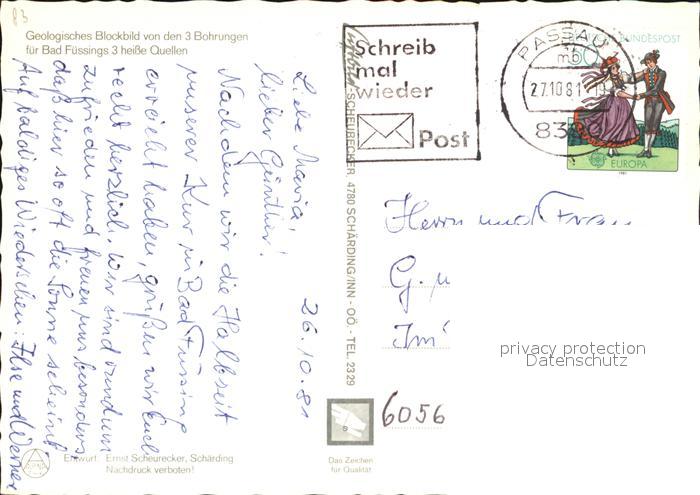 83
Geologisches Blockbild von den 3 Bohrungen
für Bad Füssings 3 heiße Quellen
26.10.81
Liebe Maria,
lieber Günther!
Nachdem wir die Halbzeit
unserer Kur in Bad Füssing
erreicht haben, grüßen wir Euch
recht herzlich. Wir sind rundum
zufrieden und freuen uns besonders,
daß hier so oft die Sonne scheint
Auf baldiges Wiedersehen: Ilse und Werner
Entwurf: Ernst Scheurecker, Schärding
Nachdruck verboten!
SCHEURECKER, 4780 SCHÄRDING/INN - OÖ. - TEL. 2329
Das Zeichen
für Qualität
Schreib
mal
wieder
Post
PASSAU
mb
27.10.81
BUNDESPOST
EUROPA
1981
Herrn und Frau
G. u
Im
6056
privacy protection
Datenschutz